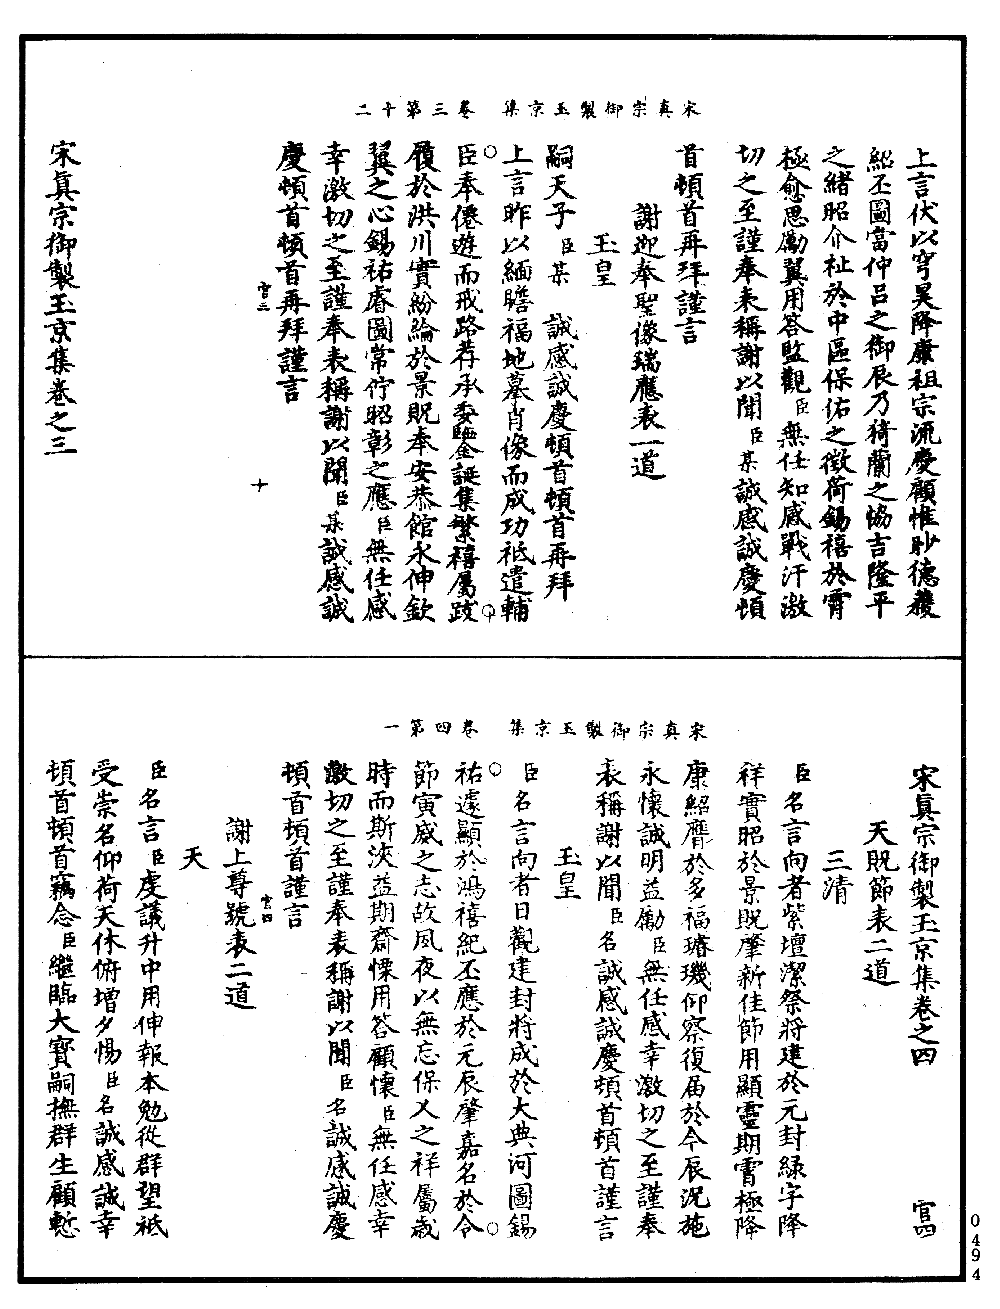 宋真宗御製玉京集　卷三第十二
上言伏以穹昊降康祖宗流慶顧惟眇德獲
紹丕圖當仲呂之御辰乃猗蘭之協吉隆平
之緒昭介祉於中區保佑之徵荷錫禧於霄
極愈思勵翼用答監觀臣無任知感戰汗激
切之至謹奉表稱謝以聞臣某誠感誠慶頓
首頓首再拜謹言
謝迎奉聖像瑞應表一道
玉皇
嗣天子臣某　誠感誠慶頓首頓首再拜
上言昨以緬瞻福地摹肖像而成功祗遣輔
臣奉僊遊而戒路荐承委鑒誕集繁禧屬跂
履於洪川實紛綸於景貺奉安恭館永伸欽
翼之心錫祐睿圖常佇昭彰之應臣無任感
幸激切之至謹奉表稱謝以聞臣某誠感誠
慶頓首頓首再拜謹言
官三　十
宋真宗御製玉京集卷之三
宋真宗御製玉京集　卷四第一
宋真宗御製玉京集卷之四　官四
天貺節表二道
三清
臣名言向者紫壇潔祭將建於元封綠字降
祥實昭於景貺肇新佳節用顯靈期霄極降
康紹膺於多福璿璣仰察復屆於今辰況施
永懷誠明益勵臣無任感幸激切之至謹奉
表稱謝以聞臣名誠感誠慶頓首頓首謹言
玉皇
臣名言向者日觀建封將成於大典河圖錫
祐遽顯於鴻禧紀丕應於元辰肇嘉名於令
節寅威之志故夙夜以無忘保乂之祥屬歲
時而斯浹益期齋慄用答顧懷臣無任感幸
激切之至謹奉表稱謝以聞臣名誠感誠慶
頓首頓首謹言
官四
謝上尊號表二道
天
臣名言臣虔議升中用伸報本勉從群望祗
受崇名仰荷天休俯增夕惕臣名誠感誠幸
頓首頓首竊念臣繼臨大寶嗣撫群生顧慙
0494